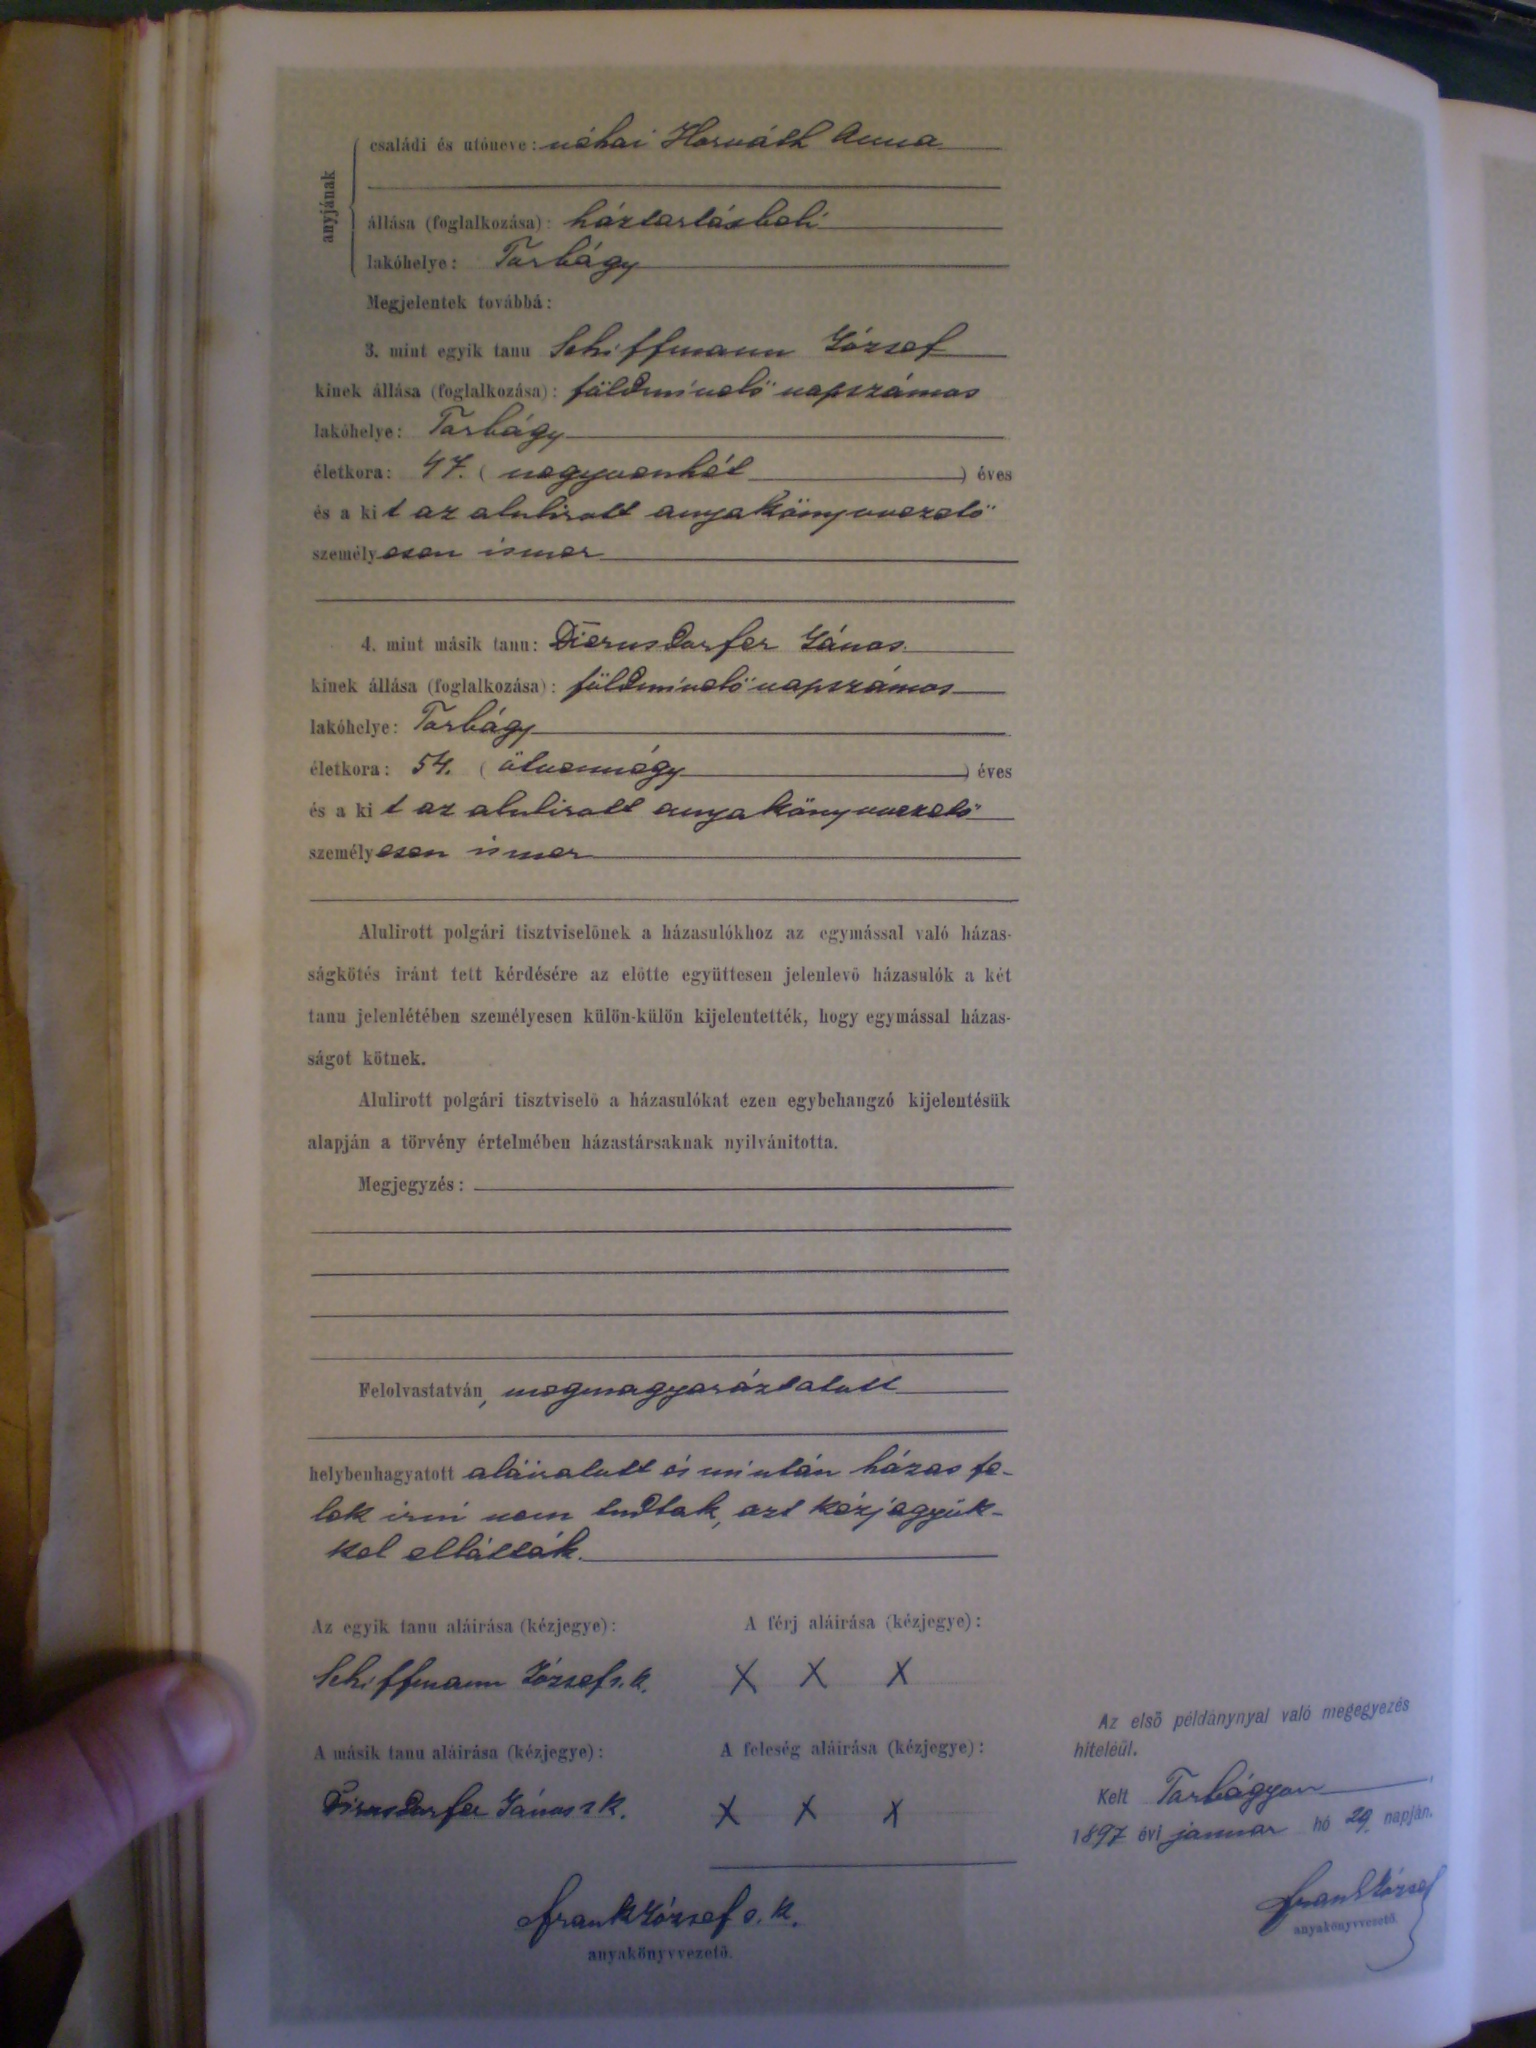 anyjának
családi és utóneve: néhai Horváth Anna
állása (foglalkozása): háztartásbeli
lakóhelye: Torbágy
Megjelentek továbbá:
3. mint egyik tanu Schiffmann József
kinek állása (foglalkozása): földmívelő napszámos
lakóhelye: Torbágy
életkora: 47. (negyvenhét) éves
és a kit az alulirott anyakönyvvezető
személyesen ismer
4. mint másik tanu: Diernsdorfer János
kinek állása (foglalkozása): földmívelő napszámos
lakóhelye: Torbágy
életkora: 54. (ötvennégy) éves
és a kit az alulirott anyakönyvvezető
személyesen ismer
Alulirott polgári tisztviselőnek a házasulókhoz az egymással való házas-
ságkötés iránt tett kérdésére az előtte együttesen jelenlevő házasulók a két
tanu jelenlétében személyesen külön-külön kijelentették, hogy egymással házas-
ságot kötnek.
Alulirott polgári tisztviselő a házasulókat ezen egybehangzó kijelentésük
alapján a törvény értelmében házastársaknak nyilvánitotta.
Megjegyzés:
Felolvastatván, megmagyaráztatott
helybenhagyatott aláiratott és miután házas fe-
lek irni nem tudtak, azt kézjegyük-
kel ellátták.
Az egyik tanu aláirása (kézjegye): A férj aláirása (kézjegye):
Schiffmann József s. k. X X X
A másik tanu aláirása (kézjegye): A feleség aláirása (kézjegye):
Diernsdorfer János s k. X X X
Frank József s. k.
anyakönyvvezető.
Az első példánynyal való megegyezés
hiteléül.
Kelt Torbágyon,
1897 évi januar hó 29. napján.
Frank József
anyakönyvvezető.